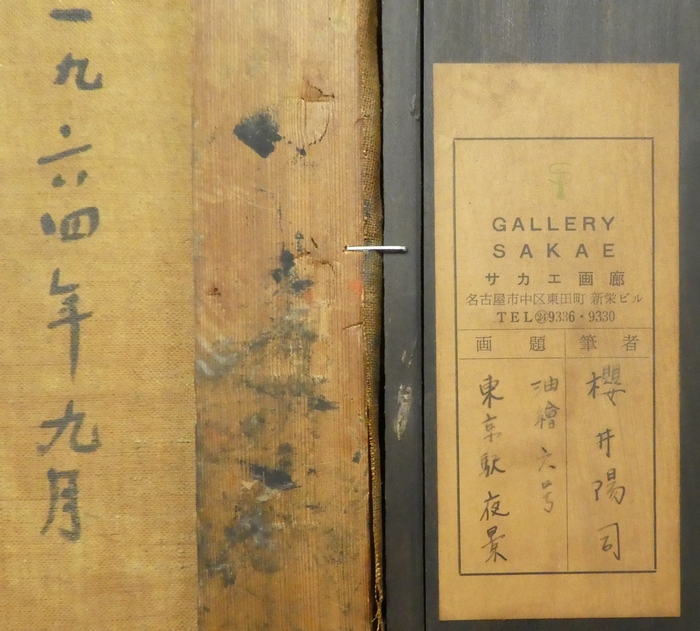 一九六四年九月
GALLERY
SAKAE
サカエ画廊
名古屋市中区東田町 新栄ビル
TEL㉔9336・9330
画題 筆者
櫻井陽司
油繪六号
東京駅夜景